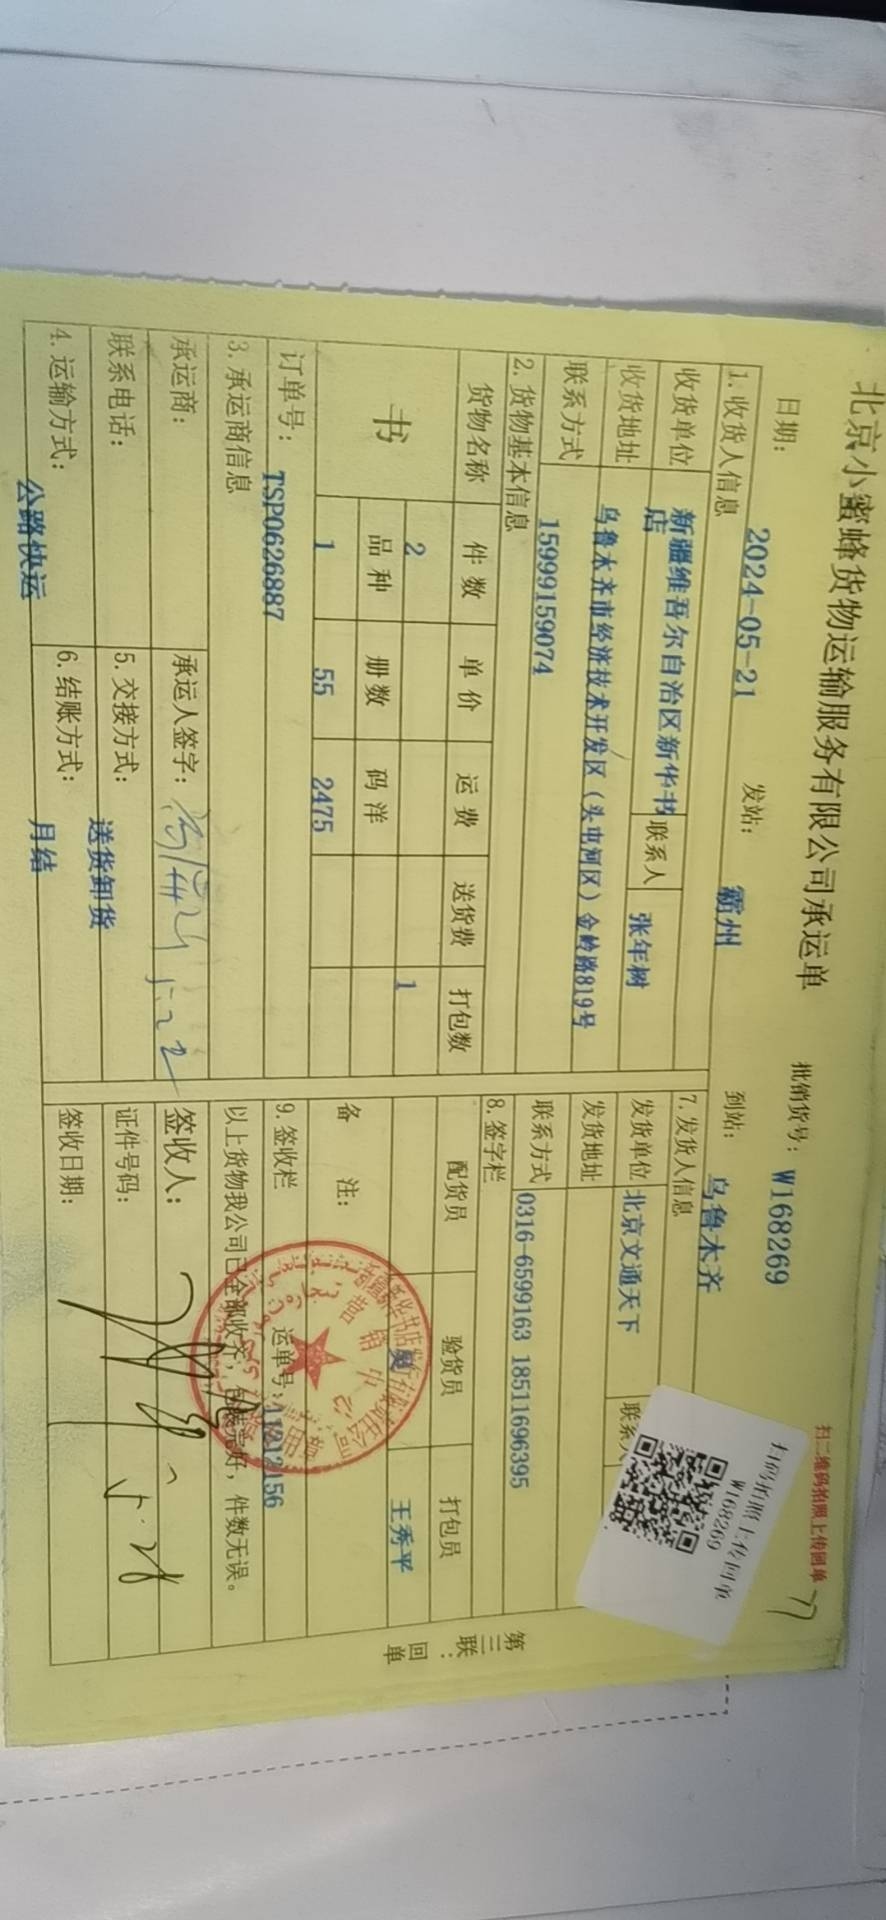 北京小蜜蜂货物运输服务有限公司承运单
批销货号: W168269
扫二维码拍照上传回单
77
日期: 2024-05-21 发站: 霸州 到站: 乌鲁木齐
扫码拍照上传回单
W168269
1. 收货人信息
收货单位 新疆维吾尔自治区新华书店 联系人 张年树
收货地址 乌鲁木齐市经济技术开发区（头屯河区）金岭路819号
联系方式 15999159074
2. 货物基本信息
货物名称 件数 单价 运费 送货费 打包数
书 2 1
品种 册数 码洋
1 55 2475
订单号: TSP0626887
3. 承运商信息
承运商: 承运人签字: 5.22
联系电话: 5. 交接方式: 送货卸货
4. 运输方式: 公路快运 6. 结账方式: 月结
7. 发货人信息
发货单位 北京文通天下 联系人
发货地址
联系方式 0316-6599163 18511696395
8. 签字栏
配货员 验货员 打包员
王秀平
备 注:
9. 签收栏 运单号:
以上货物我公司已全部收齐，包装完好，件数无误。
签收人:
证件号码:
签收日期: 5.28
营销中心
第三联: 回单